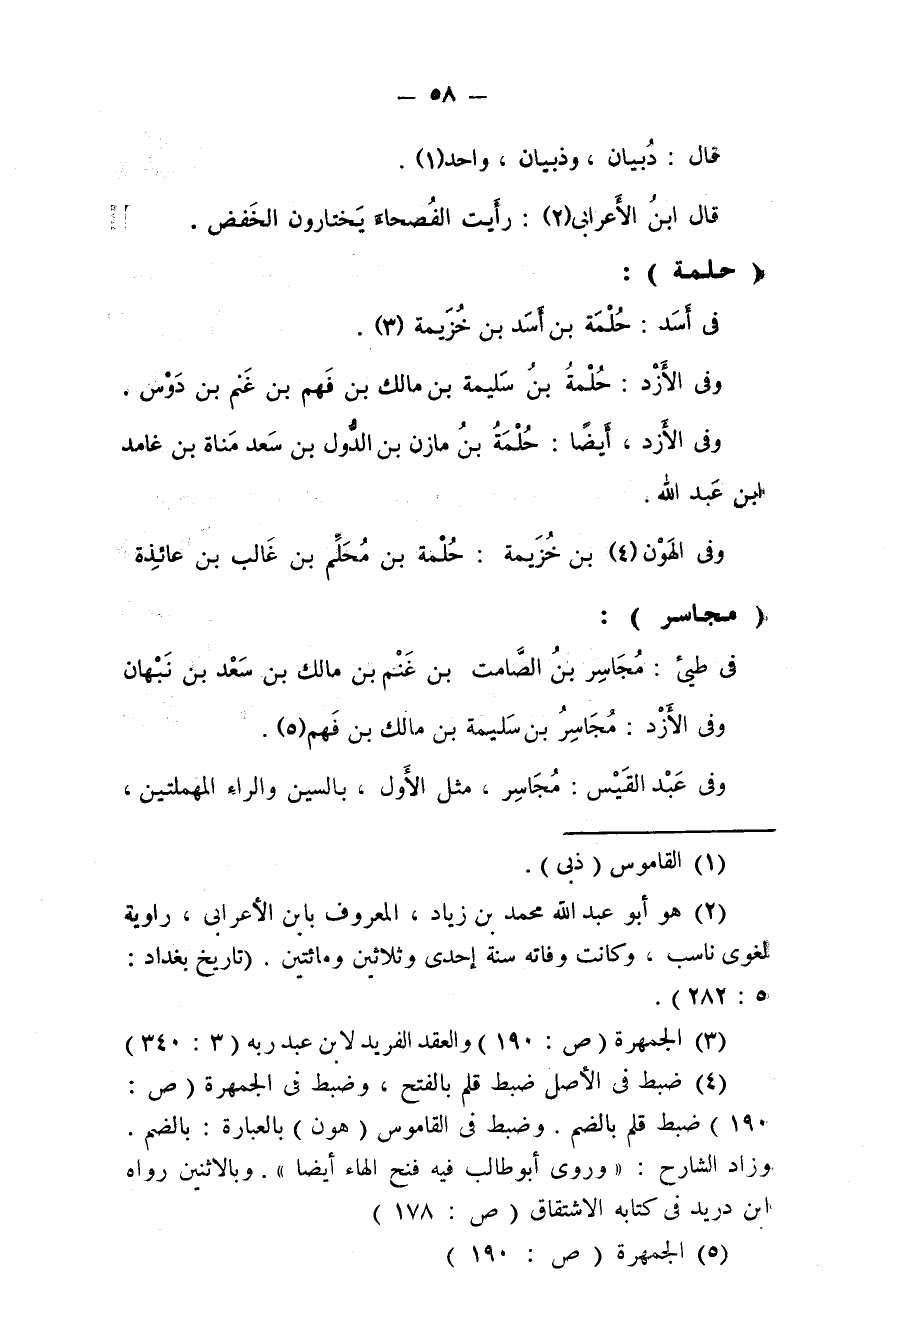 — ٥٨ —
قال : دُبيان ، وذبيان ، واحد(١) .
قال ابنُ الأَعرابى(٢) : رأَيت الفُصحاءَ يَختارون الخَفض .
( حلمة ) :
فى أَسَد : حُلْمَة بن أَسَد بن خُزَيمة (٣) .
وفى الأَزْد : حُلْمةُ بنُ سَليمة بن مالك بن فَهم بن غَنم بن دَوْس .
وفى الأَزد ، أَيضًا : حُلْمَةُ بنُ مازن بن الدُّول بن سَعد مَناة بن غامد
ابن عَبد الله .
وفى الهَوْن(٤) بن خُزَيمة : حُلْمة بن مُحَلِّم بن غَالب بن عائِذة
( مجاسر ) :
فى طيئ : مُجَاسِر بنُ الصَّامت بن غَنْم بن مالك بن سَعْد بن نَبْهان
وفى الأَزْد : مُجَاسِرُ بن سَليمة بن مالك بن فَهم(٥) .
وفى عَبْد القَيْس : مُجَاسِر ، مثل الأَول ، بالسين والراء المهملتين ،
(١) القاموس ( ذبى ) .
(٢) هو أبو عبد الله محمد بن زياد ، المعروف بابن الأعرابى ، راوية
لغوى ناسب ، وكانت وفاته سنة إحدى وثلاثين ومائتين . (تاريخ بغداد :
٥ : ٢٨٢ ) .
(٣) الجمهرة ( ص : ١٩٠ ) والعقد الفريد لابن عبد ربه ( ٣ : ٣٤٠ )
(٤) ضبط فى الأصل ضبط قلم بالفتح ، وضبط فى الجمهرة ( ص :
١٩٠ ) ضبط قلم بالضم . وضبط فى القاموس ( هون ) بالعبارة : بالضم .
وزاد الشارح : « وروى أبو طالب فيه فتح الهاء أيضا » . وبالاثنين رواه
ابن دريد فى كتابه الاشتقاق ( ص : ١٧٨ )
(٥) الجمهرة ( ص : ١٩٠ )